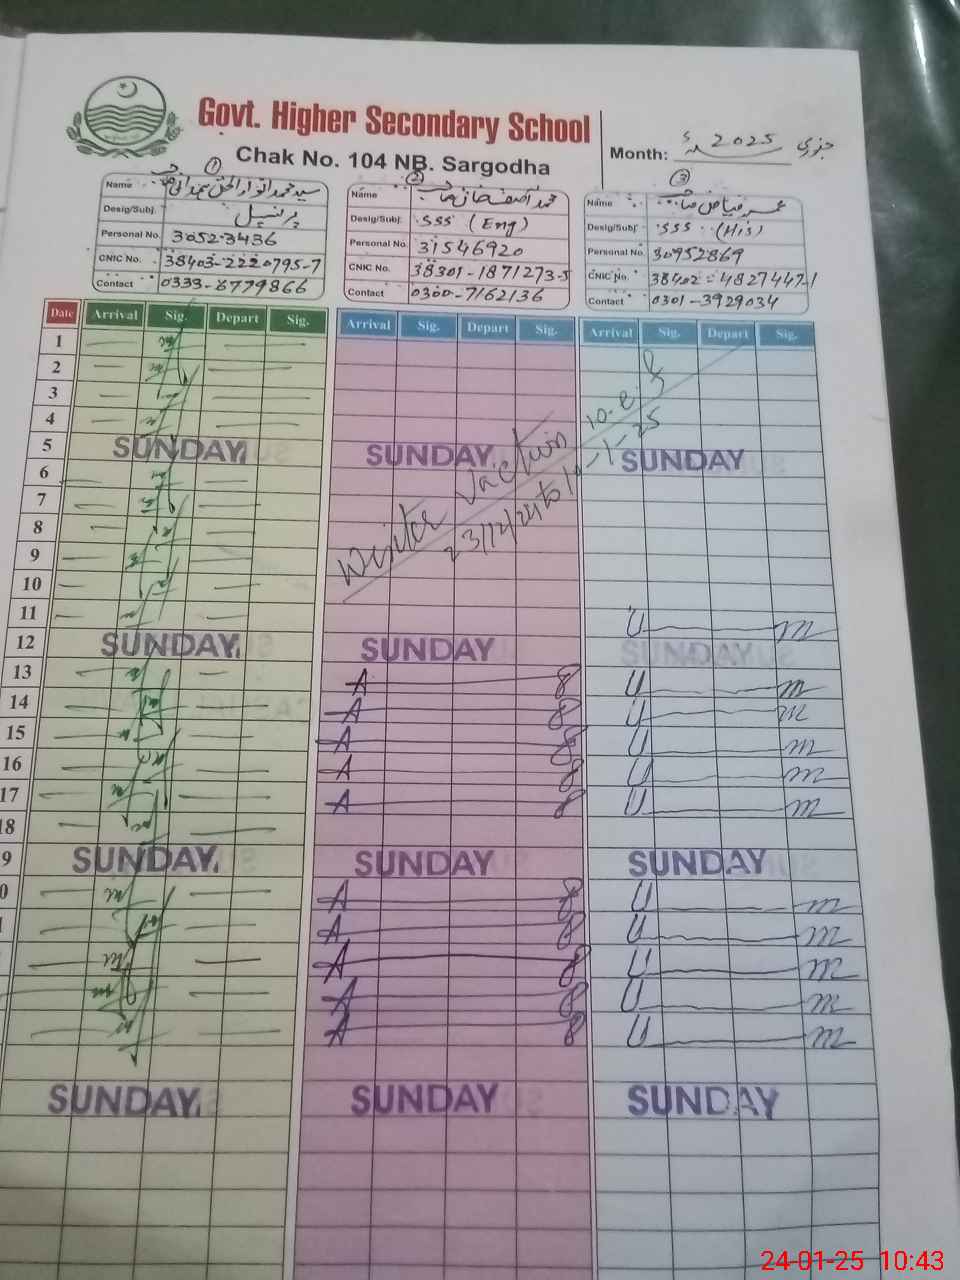 Govt. Higher Secondary School
Chak No. 104 NB. Sargodha
Month: جنوری 2025ء
①
Name سید محمد انوار الحق ہمدانی صاحب
Desig/Subj. پرنسپل
Personal No. 30523436
CNIC No. 38403-2220795-7
Contact 0333-6779866
②
Name محمد آصف خان صاحب
Desig/Subj. SSS (Eng)
Personal No. 31546920
CNIC No. 38301-1871273-5
Contact 0300-7162136
③
Name عمر فیاض صاحب
Desig/Subj. SSS (His)
Personal No. 30952869
CNIC No. 38402-4827447-1
Contact 0301-3929034
Date Arrival Sig. Depart Sig. Arrival Sig. Depart Sig. Arrival Sig. Depart Sig.
1
2
3
4
5 SUNDAY SUNDAY SUNDAY
6
7
8
9
10
Winter Vaction w.e.f
23/12/24 to 10-1-25
11 U
12 SUNDAY SUNDAY SUNDAY
13 A U
14 A U
15 A U
16 A U
17 A U
18
9 SUNDAY SUNDAY SUNDAY
0 A U
1 A U
A U
A U
A U
SUNDAY SUNDAY SUNDAY
24-01-25 10:43